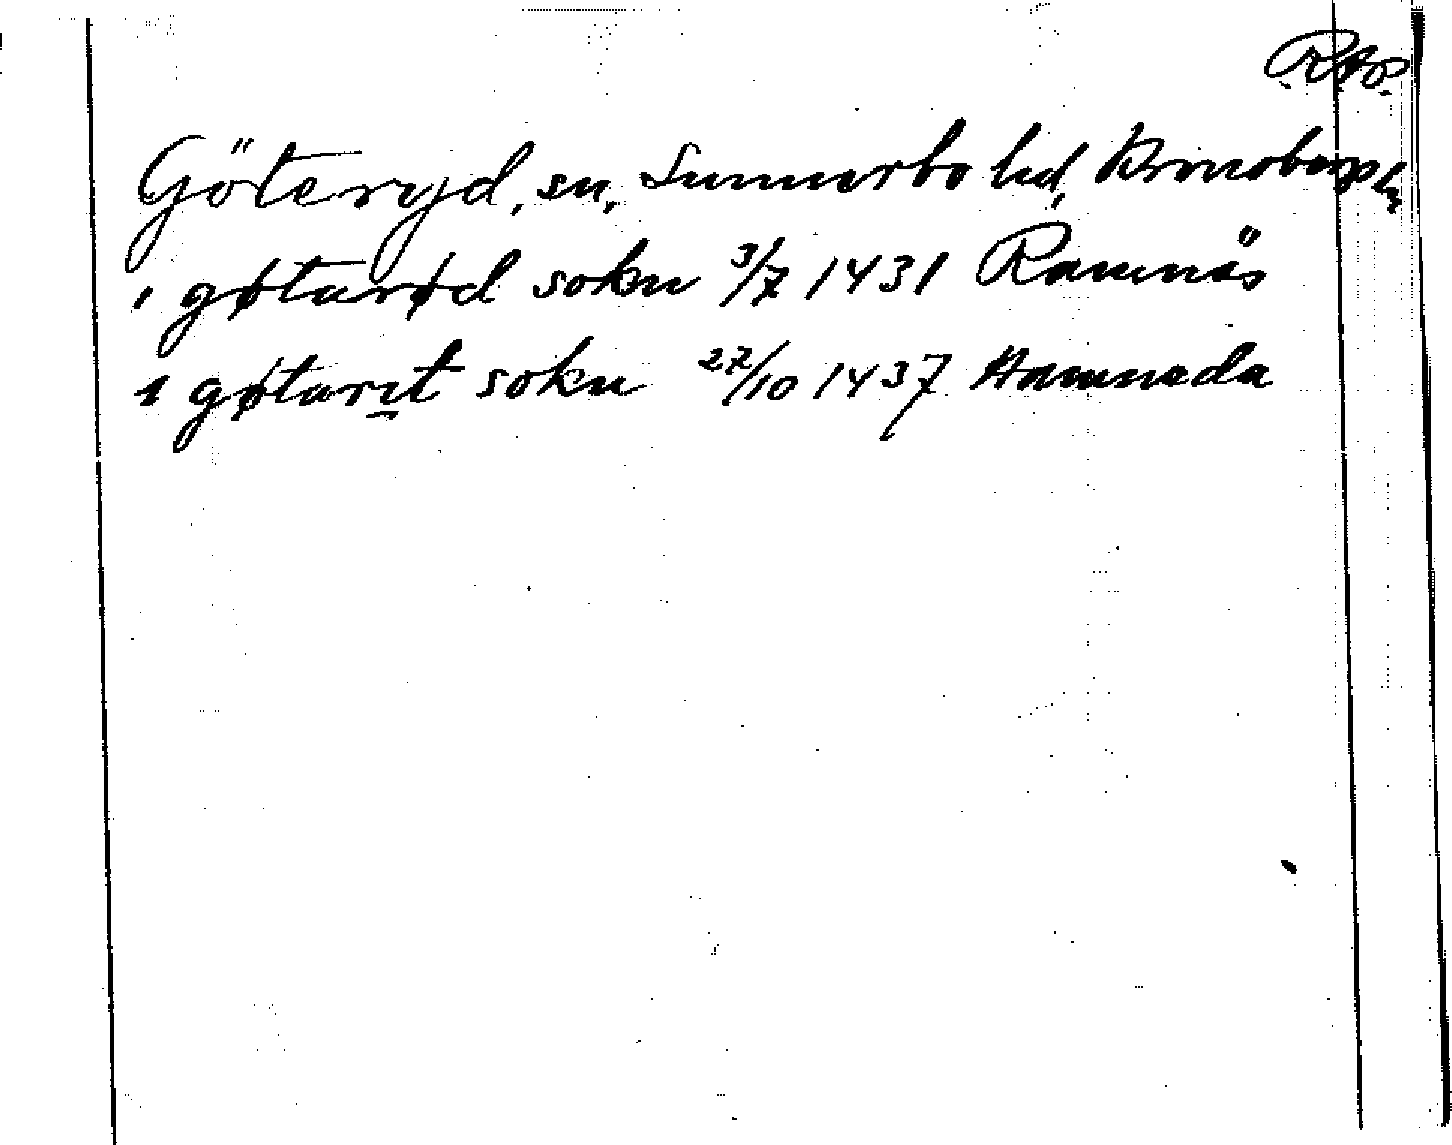 RAp.
Göteryd, sn, Sunnerbo hd, Kronobergs ln
i gøtarød sokn 3/7 1431 Ramnäs
i gøtarit sokn 27/10 1437 Hamneda